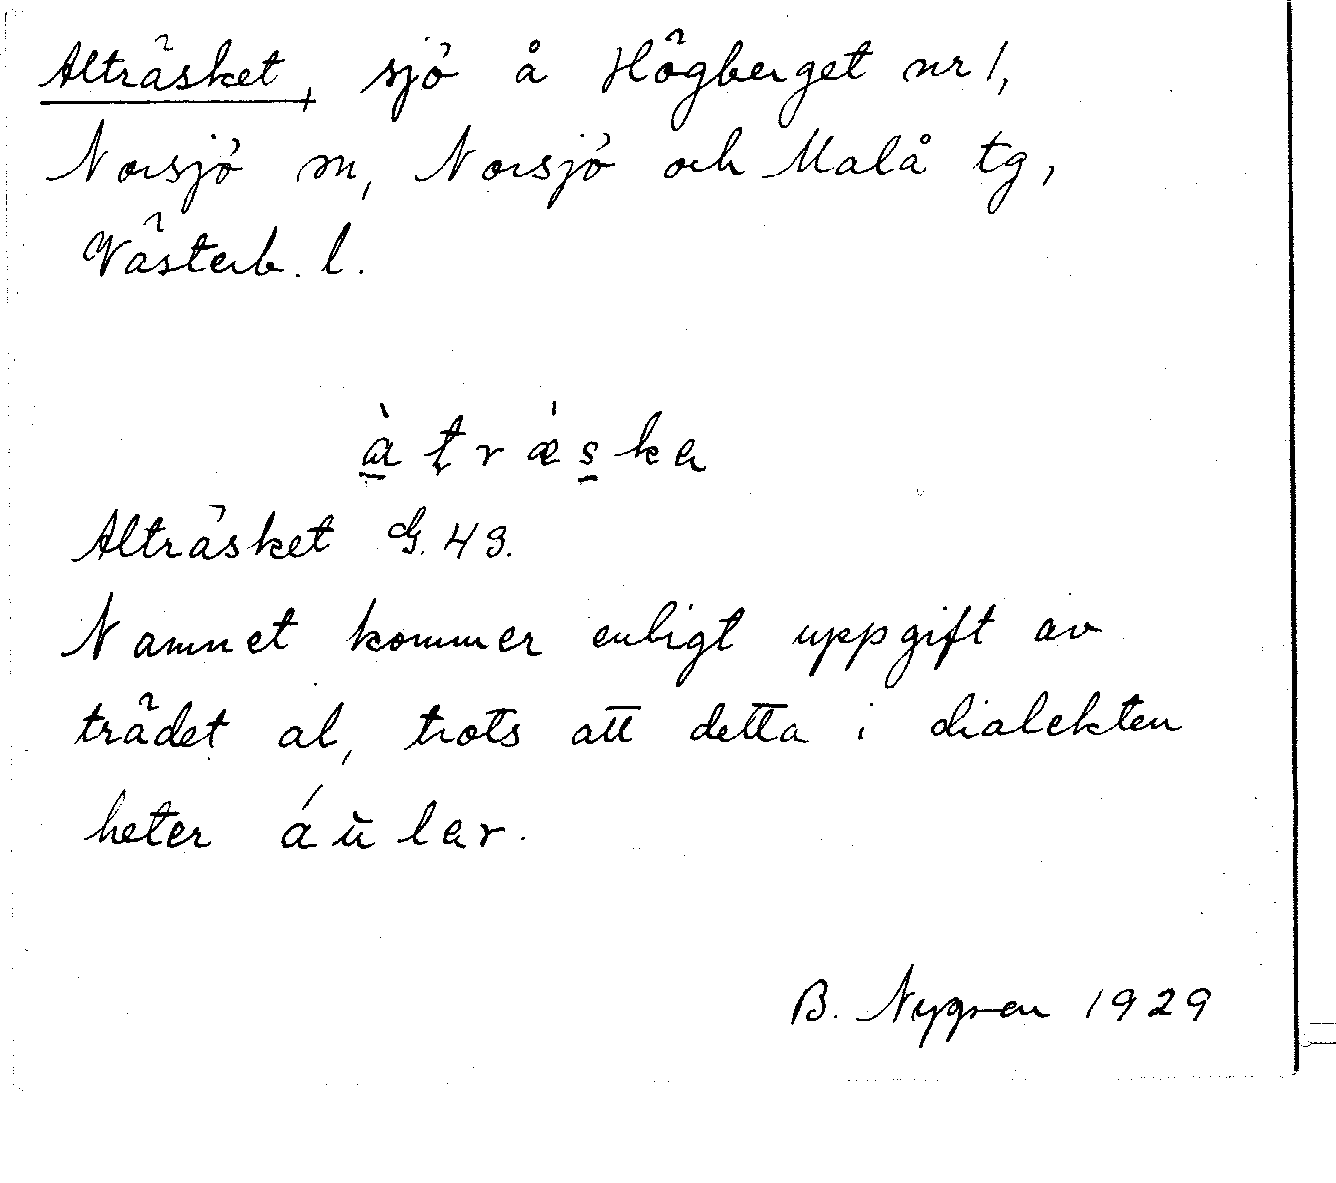 Alträsket, sjö å Högberget nr 1,
Norsjö sn, Norsjö och Malå tg,
Västerb. l.
àtrǽska
Alträsket G. 43.
Namnet kommer enligt uppgift av
trädet al, trots att detta i dialekten
heter áùlar.
B. Nygren 1929